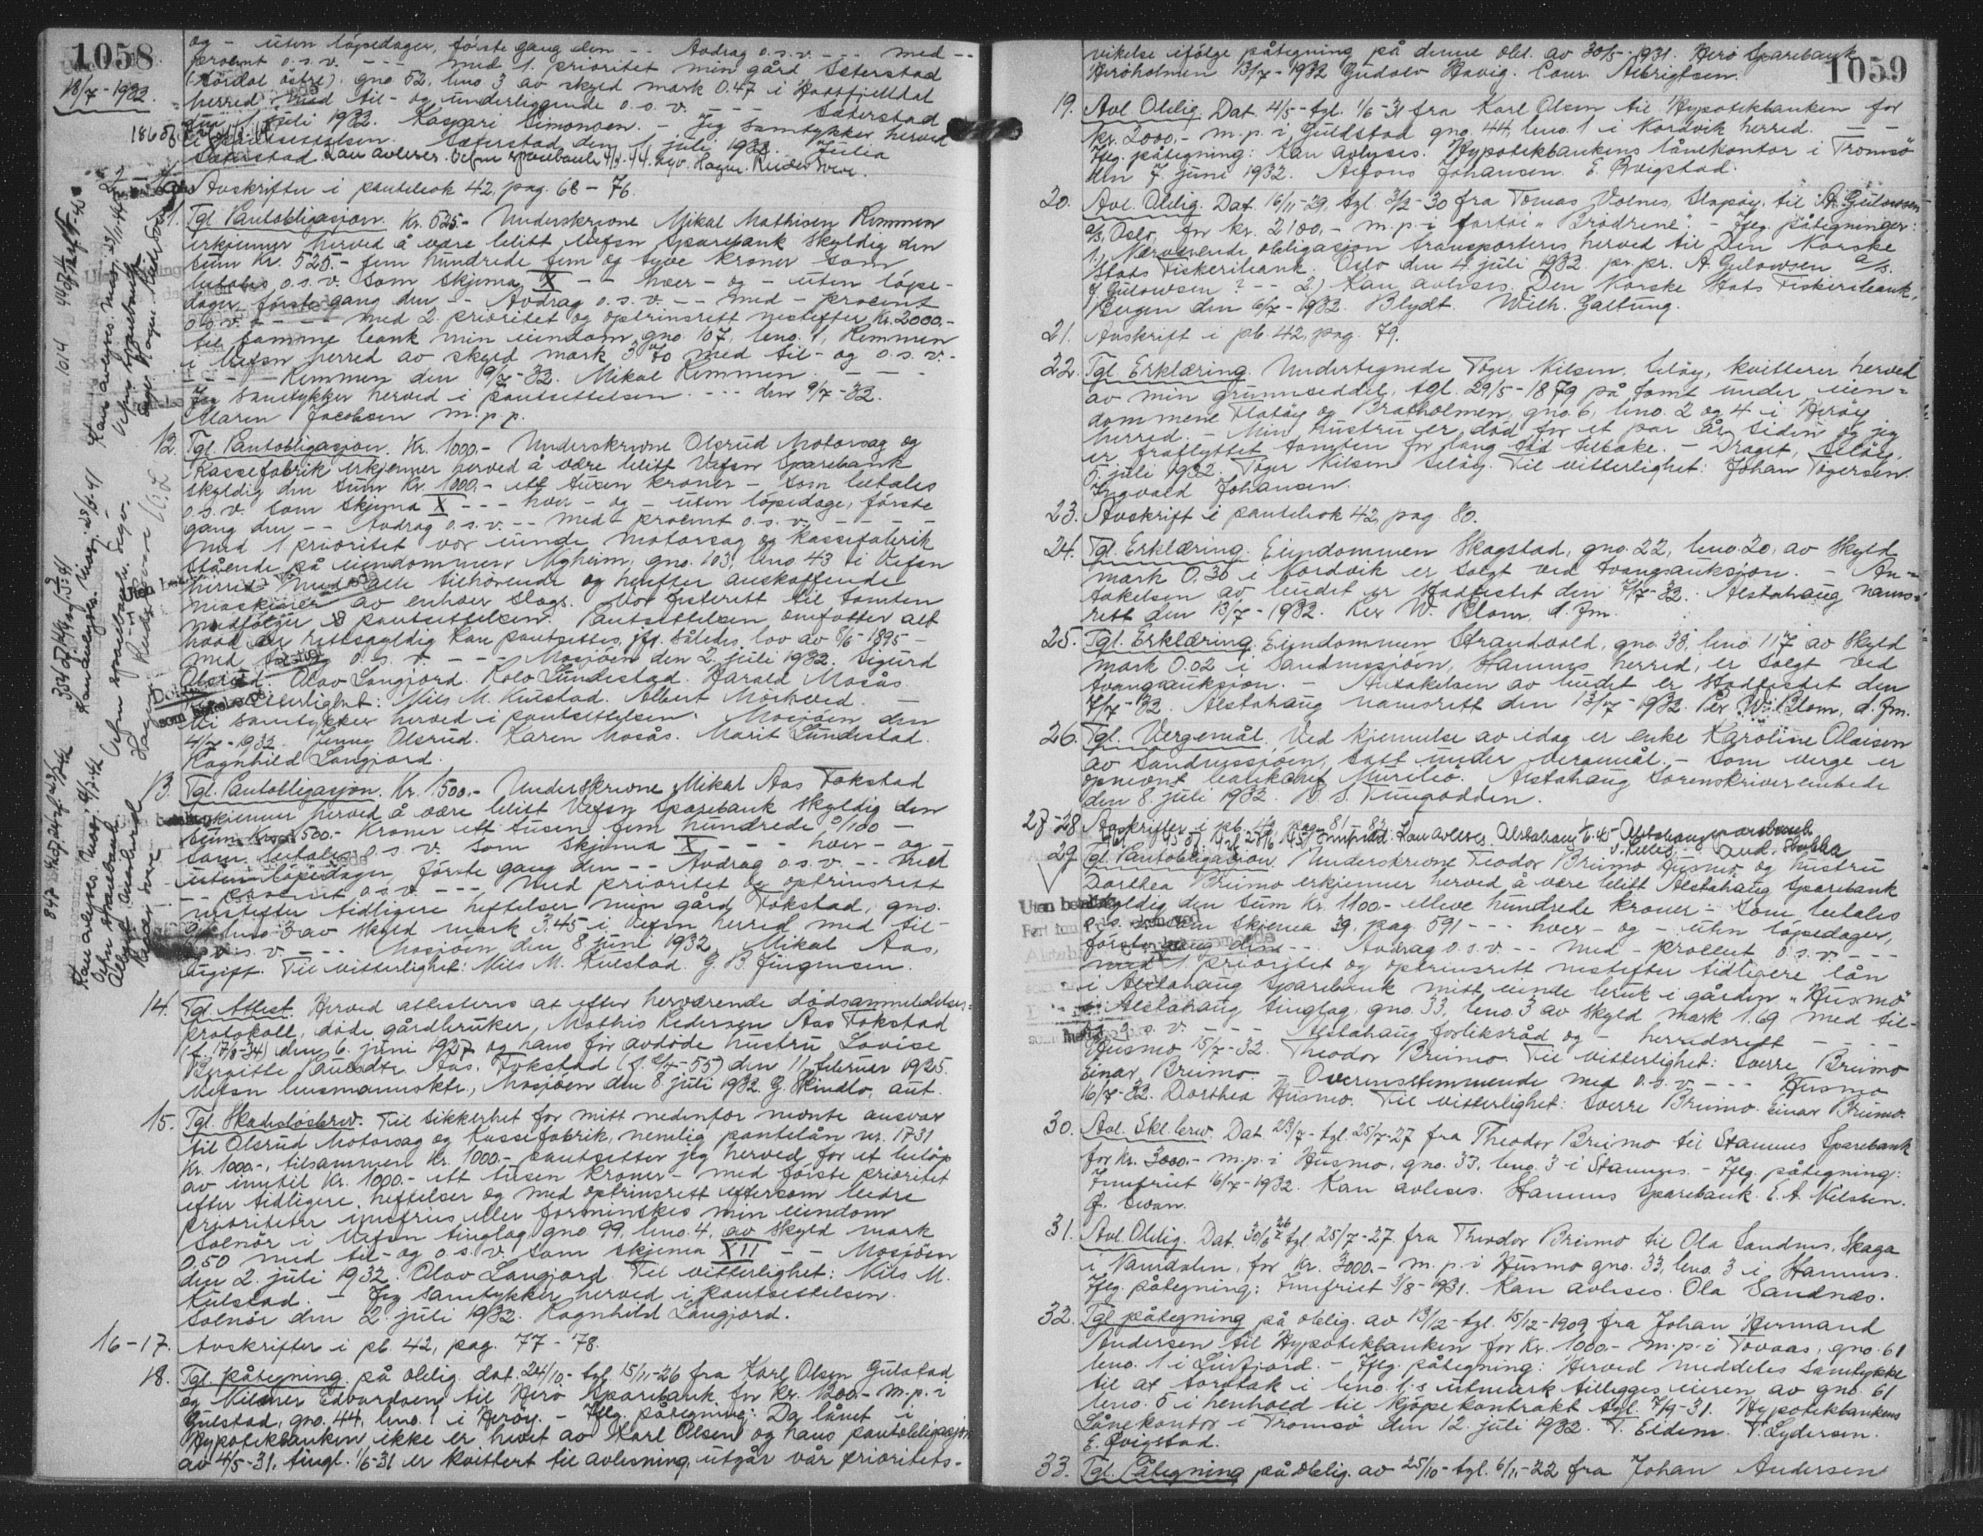 1058
18/7-1932.
og - uten löpedager, förste gang den -- Avdrag o.s.v. --- med --
procent o.s.v. --- med 1. prioritet min gård Sæterstad
(Mördal östre). gno 52, bno 3 av skyld mark 0.47 i Hattfjelldal
herred med til- og underliggende o.s.v. --- Sæterstad
juli 1932. Kaspari Simonsen. - Jeg samtykker herved
i pantsettelsen. Sæterstad den 1 juli 1932. Julia
Sæterstad. Kan avleses. Vefsn sparebank
Avskrifter i pantebok 42, pag. 68-76.
11. Tgl. Pantobligasjon. Kr. 525.- Underskrevne Mikal Mathisen Remmen
erkjenner herved å være blitt Vefsn Sparebank skyldig den
sum kr. 525.- fem hundrede fem og tyve kroner som
betales o.s.v. som skjema X -- hver - og - uten löpe-
dager, förste gang den - Avdrag o.s.v. -- med - procent
o.s.v. ---- med 2. prioritet og optrinsrett nestefter kr. 2000.-
til samme bank min eiendom gno. 107, bno. 1, Remmen
i Vefsn herred av skyld mark 3.70 med til- og o.s.v.-
---- Remmen den 9/7-32. Mikal Remmen. ---
Jeg samtykker herved i pantsettelsen. --- den 9/7-32.
Maren Jacobsen m.p.p.
12. Tgl. Pantobligasjon. Kr. 1000.- Underskrevne Olsrud Motorsag og
Kassefabrik erkjenner herved å være blitt Vefsn Sparebank
skyldig den sum kr. 1000.- ett tusen kroner - som betales
o.s.v. som skjema X --- hver - og - uten löpedage, förste
gang den -- Avdrag o.s.v. -- med - procent o.s.v. ----
med 1 prioritet vor eiende motorsag og kassefabrik
stående på eiendommen Nyheim, gno. 103, bno 43 i Vefsn
herred med alle tilhörende og herefter anskaffende
maskiner av enhver slags. Vor festerett til tomten
medfölger i pantsettelsen. Pantsettelsen omfatter alt
hvad der rettsgyldig kan pantsettes, jfr. således lov av 8/6-1895 -
med o.s.v. --- Mosjöen den 2. juli 1932. Sigurd
Olsrud. Olav Langjord. Kolo Lundestad. Harald Mosås.
Til vitterlighet: Nils M. Kulstad. Albert Mörkved. -
Vi samtykker herved i pantsettelsen. Mosjöen den
4/7-1932. Jenny Olsrud. Karen Mosås. Marit Lundestad.
Ragnhild Langjord.
13. Tgl. Pantobligasjon. Kr. 1500.- Underskrevne Mikal Aas Fokstad
erkjenner herved å være blitt Vefsn Sparebank skyldig den
sum kr. 1500.- kroner ett tusen fem hundrede 0/100 -
som betales o.s.v. som skjema X --- hver - og -
uten löpedager, förste gang den -- Avdrag o.s.v. -- med
-- procent o.s.v. --- med prioritet og optrinsrett
nestefter tidligere heftelser min gård Fokstad, gno.
bno 3 av skyld mark 3.45 i Vefsn herred med til-
o.s.v. --- Mosjöen den 8 juni 1932. Mikal Aas,
ugift. Til vitterlighet: Nils M. Kulstad. G. B. Jürgensen.
14. Tgl. Attest. Herved attesteres at efter herværende dödsanmeldelses-
protokoll, döde gårdbruker, Mathis Pedersen Aas Fokstad
(f. 17/8-34) den 6. juni 1927 og hans för avdöde hustru Lovise
Birgitte Aas, Fokstad den 11 februar 1925.
Vefsn lensmannsktr., Mosjöen den 8 juli 1932. G. Skindlo, aut.
15. Tgl. Skadeslösbrev. Til sikkerhet for mitt nedenfor nevnte ansvar
til Olsrud Motorsag og Kassefabrik, nemlig pantelån nr. 1731
kr. 1000.-, tilsammen kr. 1000.- pantsetter jeg herved for et belöp
av inntil kr. 1000.- ett tusen kroner - med förste prioritet
efter tidligere heftelser og med optrinsrett eftersom bedre
prioriteter innfries eller forminskes min eiendom
Solnör i Vefsn tinglag gno. 99, bno. 4, av skyld mark
0.50 med til- og o.s.v. som skjema XII -- Mosjöen
den 2. juli 1932. Olav Langjord. Til vitterlighet: Nils M.
Kulstad. - Jeg samtykker herved i pantsettelsen.
Solnör den 2. juli 1932. Ragnhild Langjord.
16-17. Avskrifter i pb. 42, pag. 77-78.
18. Tgl. påtegning på oblig. dat. 24/10- tgl. 15/11-26 fra Karl Olsen Gulstad
og Nilmer Edvardsen til Herö Sparebank for kr. 1200.- m.p. i
Gulstad, gno. 44, bno. 1 i Heröy. - Iflg. påtegning: Da lånet i
Hypotekbanken ikke er hevet av Karl Olsen og hans pantobligasjon
av 4/5-31, tingl. 1/6-31 er kvittert til avlesning, utgår vår prioritets-
1059
vikelse ifölge påtegning på denne obl. av 30/5-1931. Herö Sparebank,
Heröholmen 13/7-1932 Gudolv Havig. Conr Albrigtsen.
19. Avl. Oblig. Dat. 4/5- tgl. 1/6-31 fra Karl Olsen til Hypotekbanken for
kr. 2000.- m.p. i Gullstad gno. 44, bno. 1 i Nordvik herred. --
Iflg. påtegning: Kan avlyses. Hypotekbankens lånekontor i Tromsö
den 7. juni 1932. Alfons Johansen. E. Qvigstad.
20. Avl. Oblig. Dat. 16/11-29, tgl. 3/2-30 fra Tomas Volnes, Slapöy, til A. Gulowsen
a/s, Oslo, for kr. 2100.- m.p. i fartöi "Brödrene". - Iflg. påtegninger:
1.) Nærværende obligasjon transporteres herved til Den Norske
Stats Fiskeribank. Oslo den 4 juli 1932. pr. pr. A. Gulowsen a/s.
J Gulowsen ? -- 2) Kan avleses. Den Norske Stats Fiskeribank,
Bergen den 6/7-1932. Blydt. Wilh. Galtung.
21. Avskrift i pb. 42, pag. 79.
22. Tgl. Erklæring. Undertegnede Töger Nilsen, Selöy, kvitterer herved
av min grunnseddel, tgl. 29/5-1879 på tomt under eien-
dommene Flatöy og Bratholmen, gno. 6, bno. 2 og 4 i Heröy
herred. - Min hustru er död for et par år siden og jeg
er fraflyttet tomten for lang tid tilbake. - Draget, Selöy,
5. juli 1932. Töger Nilsen Selöy. Til vitterlighet: Johan Tögersen.
Ingvald Johansen.
23. Avskrift i pantebok 42, pag 80.
24. Tgl. Erklæring. Eiendommen Skogstad, gno. 22, bno. 20, av skyld
mark 0.30 i Nordvik er solgt ved tvangsauksjon. - An-
takelsen av budet er stadfestet den 7/7-32. Alstahaug nams-
rett den 13/7-1932. Per W. Blom, d.fm.
25. Tgl. Erklæring. Eiendommen Strandvold, gno. 38, bno 117 av skyld
mark 0.02 i Sandnessjöen, Stamnes herred, er solgt ved
tvangsauksjon. - Antakelsen av budet er stadfestet den
7/7-32. Alstahaug namsrett den 13/7-1932. Per W. Blom, d.fm.
26. Tgl. Vergemål. Ved kjennelse av idag er enke Karoline Olaisen
av Sandnessjöen, satt under vergemål. - Som verge er
opnevnt bankchef Munthe. Alstahaug Sorenskriverembede
den 8. juli 1932. B. S. Tungodden.
27-28. Avskrifter i pb. 42, pag. 81-83.
29. Tgl. Pantobligasjon. Underskrevne Teodor Breimo Husmo og hustru
Dorthea Breimo erkjenner herved å være blitt Alstahaug Sparebank
skyldig den sum kr. 1100.- elleve hundrede kroner - som betales
o.s.v. som skjema 39, pag 591 --- hver - og - uten löpedager,
förste gang den -- Avdrag o.s.v. -- med - procent o.s.v. ---
med 1 prioritet og optrinsrett nestefter tidligere lån
i Alstahaug Sparebank mitt eiende bruk i gården "Husmo"
i Alstahaug tinglag, gno. 33, bno. 3 av skyld mark 1.69 med til-
og o.s.v. ---- Alstahaug forliksråd og - herredsrett ----
Husmo 15/7-32. Theodor Breimo. Til vitterlighet: Sverre Breimo
Einar Breimo. - Overensstemmende med o.s.v. --- Husmo
16/7-32. Dorthea Husmo. Til vitterlighet: Sverre Breimo. Einar Breimo.
30. Avl. Skl.brev. Dat 23/7- tgl. 25/7-27 fra Theodor Breimo til Stamnes Sparebank
for kr. 3000.- m.p. i Husmo, gno. 33, bno. 3 i Stamnes. - Iflg. påtegning:
Innfriet 16/7-1932. Kan avleses. Stamnes Sparebank. E. A. Nilssen.
J. Svan.
31. Avl. Oblig. Dat. 30/6 26 tgl 25/7-27 fra Theodor Breimo til Ola Sandnes, Skaga
i Namdalen, for kr. 3000.- m.p. i Husmo gno. 33, bno. 3 i Stamnes.
Iflg. påtegning: Innfriet 3/8-1931. Kan avleses. Ola Sandnes.
32. Tgl påtegning på oblig. av 13/12- tgl. 15/12-1909 fra Johan Hermand
Andersen til Hypotekbanken for kr. 1000.- m.p. i Tovaas, gno. 61
bno. 1 i Leirfjord. - Iflg. påtegning: Herved meddeles samtykke
til at torvtak i bno. 1:s utmark tillegges eieren av gno. 61
bno. 5 i henhold til kjöpekontrakt tgl. 7/9-31. Hypotekbankens
Lånekontor i Tromsö den 12. juli 1932. T. Eidem. T. Lydersen.
E. Qvigstad.
33. Tgl. Påtegning på oblig. av 25/10- tgl. 6/11-22 fra Johan Andersen